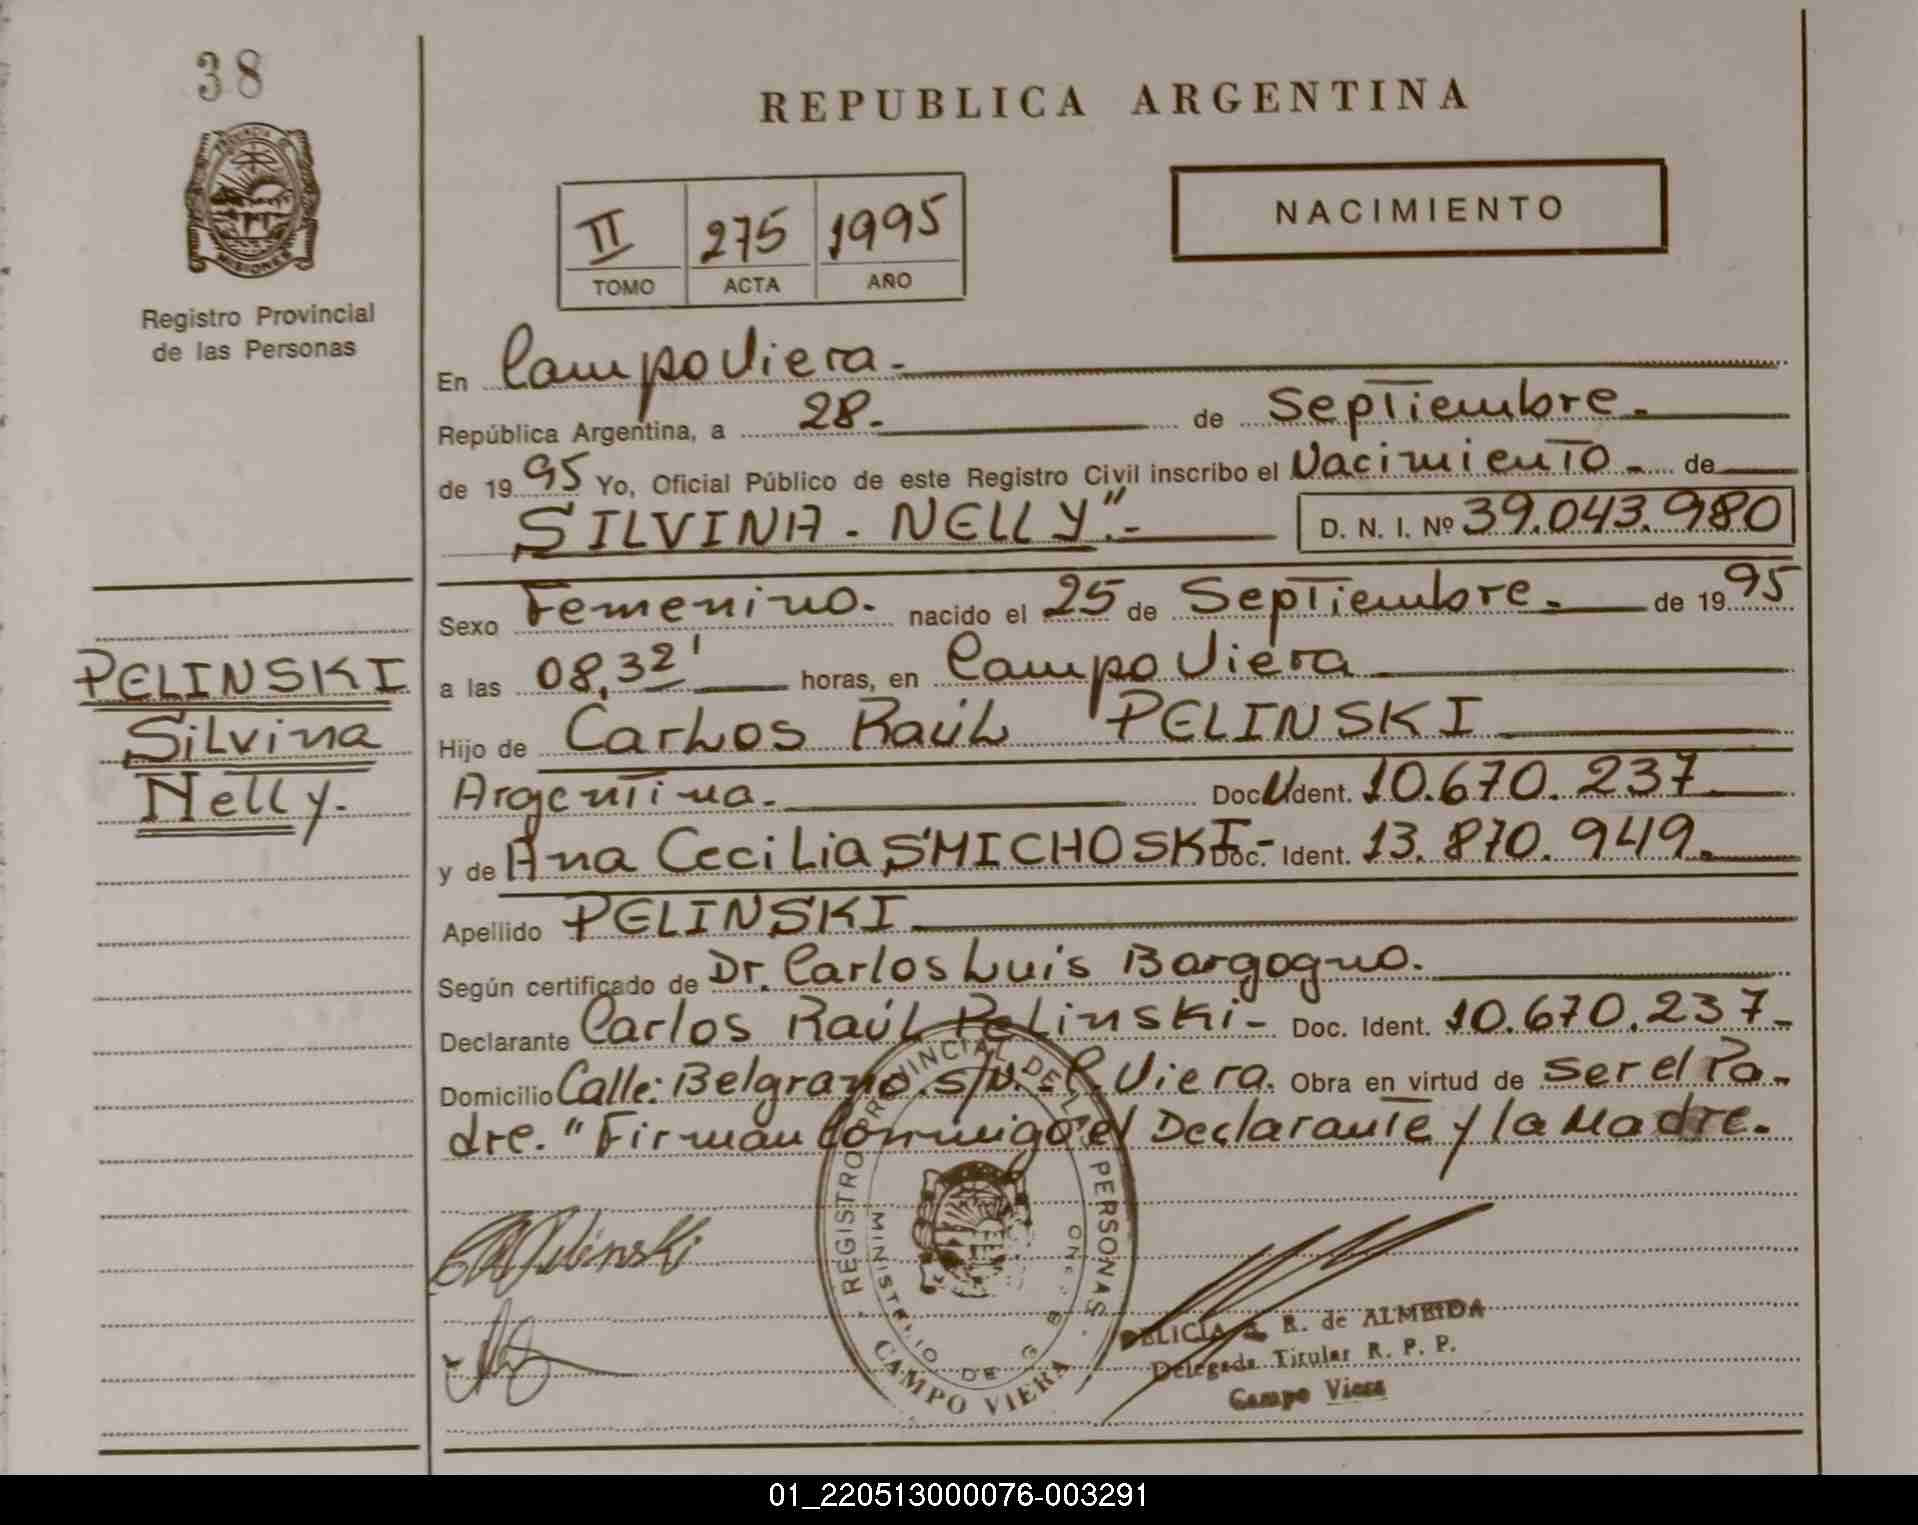 38
PROVINCIA
MISIONES
Registro Provincial
de las Personas
REPUBLICA ARGENTINA
II 275 1995
TOMO ACTA AÑO
NACIMIENTO
En Campo Viera.-
República Argentina, a 28.- de Septiembre.-
de 1995 Yo, Oficial Público de este Registro Civil inscribo el Nacimiento- de
SILVINA - NELLY".- D. N. I. Nº 39.043.980
Sexo Femenino.- nacido el 25 de Septiembre.- de 1995
a las 08,32' horas, en Campo Viera
Hijo de Carlos Raúl PELINSKI
Argentina.- Doc. Ident. 10.670.237.
y de Ana Cecilia SMICHOSKI- Doc. Ident. 13.870.949.
Apellido PELINSKI
Según certificado de Dr. Carlos Luis Bargogno.
Declarante Carlos Raúl Pelinski- Doc. Ident. 10.670.237-
Domicilio Calle: Belgrano s/N.- C. Viera. Obra en virtud de ser el Pa-
dre. "Firman Conmigo el Declarante y la Madre.
PELINSKI
Silvina
Nelly.
Pelinski
REGISTRO PROVINCIAL DE LAS PERSONAS
MINISTERIO DE GOB
CAMPO VIERA
R. de ALMEIDA
Delegada Titular R. P. P.
Campo Viera
01_220513000076-003291